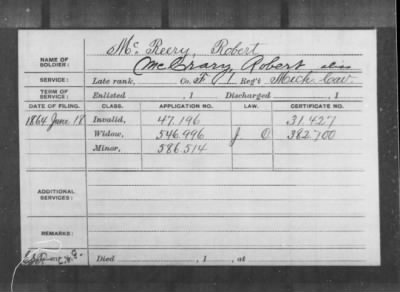 Mc Reery, Robert
NAME OF SOLDIER: McCrary, Robert alias
SERVICE: Late rank, Co. F 1 Reg't Mich. Cav.
TERM OF SERVICE: Enlisted , 1 Discharged , 1
DATE OF FILING. CLASS. APPLICATION NO. LAW. CERTIFICATE NO.
1864 June 18 Invalid, 47.196 31.427
Widow, 546.996 J O 382.700
Minor, 586.514
ADDITIONAL SERVICES:
REMARKS:
Died , 1 , at